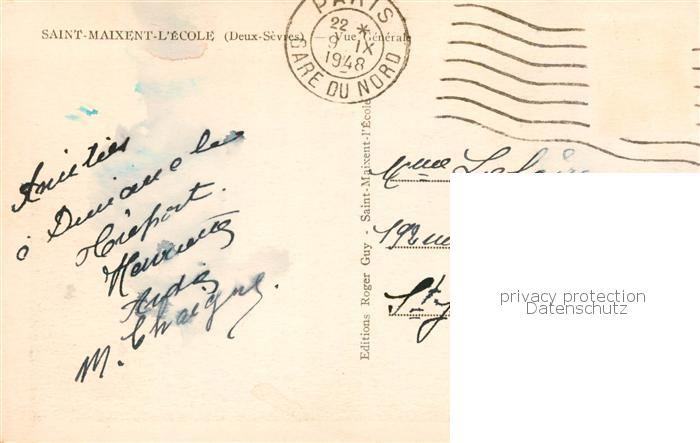 SAINT-MAIXENT-L'ÉCOLE (Deux-Sèvres) — Vue Générale
PARIS
22 *
9 IX
1948
GARE DU NORD
Amitiés
à Dimanche
Henriette
M. Chaigne.
Editions Roger Guy - Saint-Maixent-l'École
Mme
192
St
privacy protection
Datenschutz